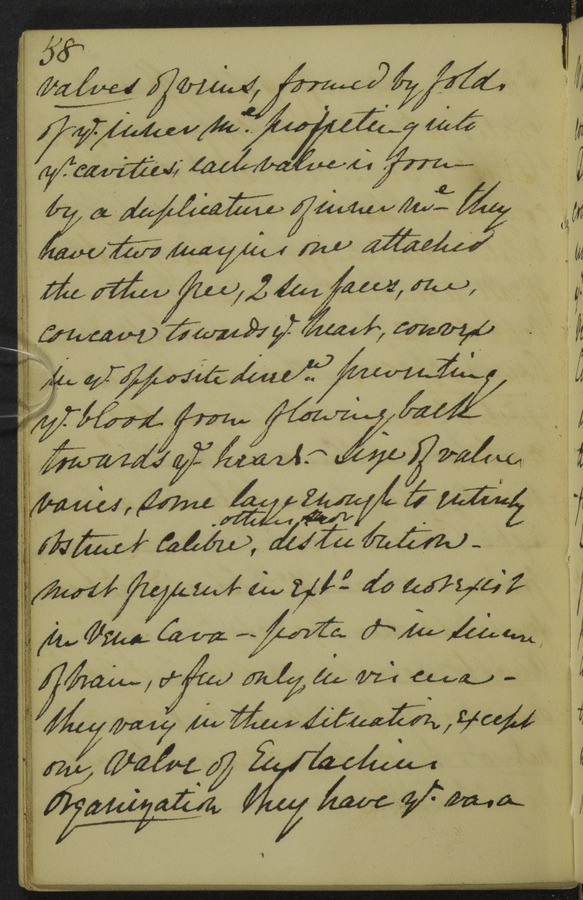 58
valves of veins, formed by folds
of ye. inner me. projecting into
ye. cavities; each valve is form
by a duplicature of inner me they
have two margins one attached
the other free, 2 surfaces, one,
concave towards ye. heart, convex
in ye. opposite direcn. preventing
ye. blood from flowing back
towards ye heart - Size of valves
varies, some large enough to entirely
others
obstruct calibre, distribution -
most frequent in exts - do not exist
in Vena Cava - porta & in sinuses
of brain, & few only, in viscera -
they vary in their situation, except
one, valve of Eustachius
Organization they have ye. vasa